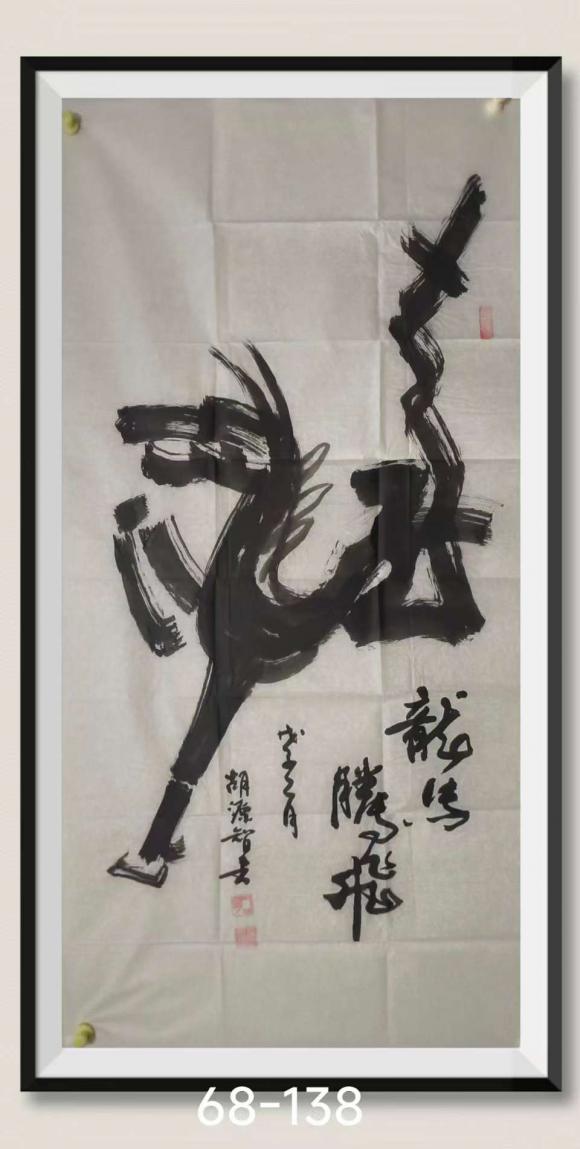 龍馬
騰飛
戊子之月
胡源智書
68-138